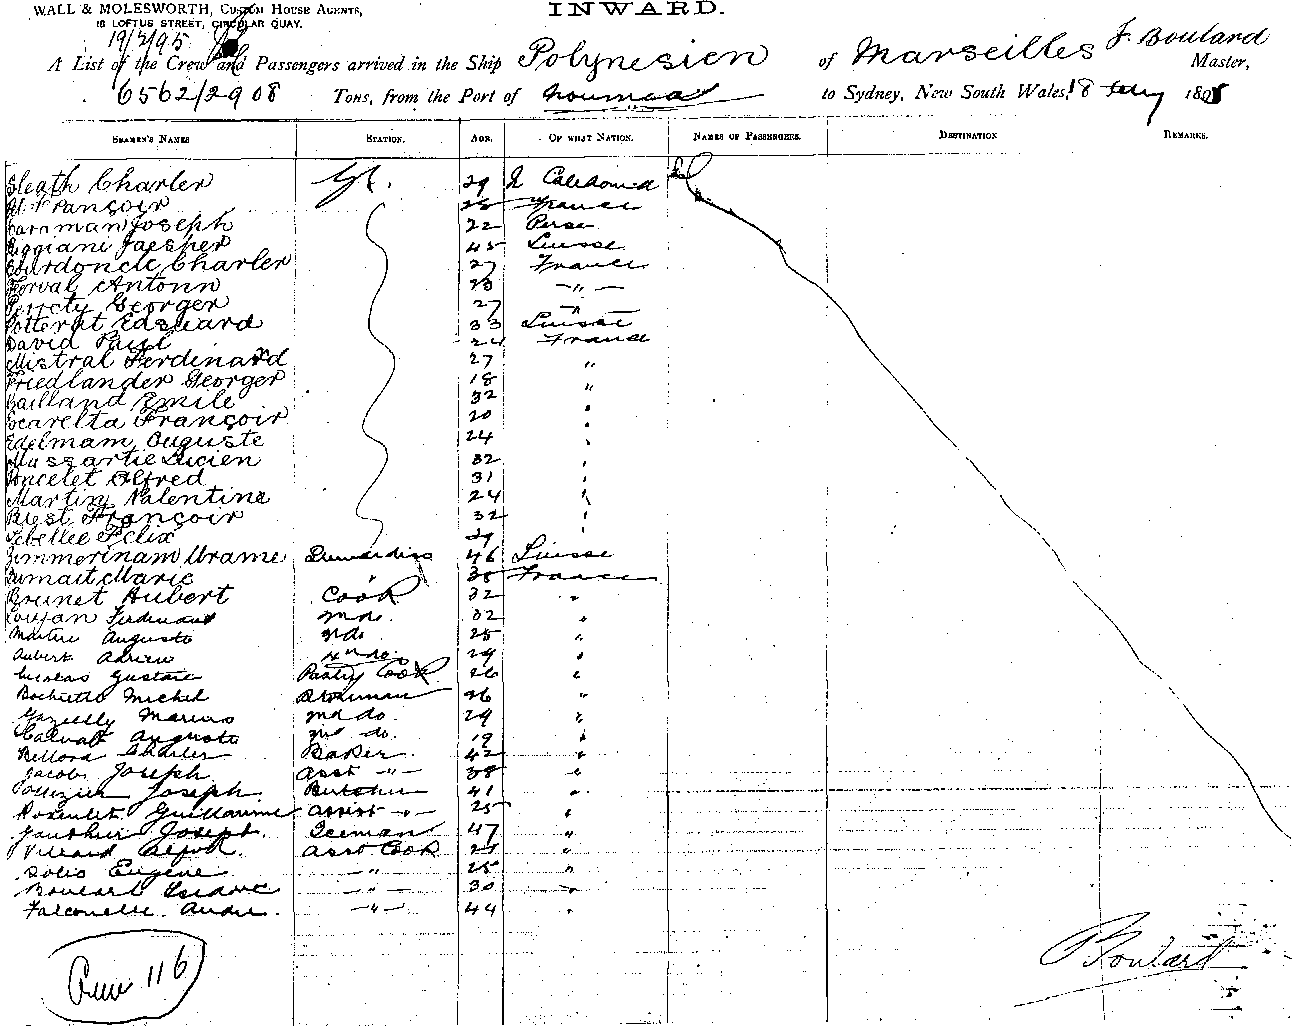 WALL & MOLESWORTH, CUSTOM HOUSE AGENTS,
18 LOFTUS STREET, CIRCULAR QUAY.
INWARD.
19/2/95
A List of the Crew and Passengers arrived in the Ship Polynesien of Marseilles J. Boulard Master,
6562/2908 Tons, from the Port of Noumea to Sydney, New South Wales, 18 Feby 1895
SEAMEN'S NAMES STATION. AGE. OF WHAT NATION. NAMES OF PASSENGERS. DESTINATION REMARKS.
Sleath Charler 29 N Caledonia
Françoir France
Carriman Joseph 22 Perse
Jaesper 45 Suisse
Bourdoncle Charler 27 France
Forval Antonn 23 -"-
Georger 27 "
Potterat Edouard 33 Suisse
David Paul 24 France
Mistral Ferdinand 27 "
Friedlander Georger 18 "
Bailland Emile 32 "
Scarelta Françoir 20 "
Edelmam Auguste 24 "
Mussartie Lucien 32 "
Poncelet Alfred 31 "
Martin Valentine 24 "
Priest Françoir 32 "
Lebellee Felix 29 "
Zimmerinam Urame 46 Suisse
Dumait Marie " 38 France
Brunet Hubert Cook 32 "
Loujan Ferdinand 2nd do. 32 "
Martin Auguste 3d do. 25 "
Aubert Adrien 4th do. 29 "
Lucas Gustave Pastry Cook 26 "
Michel 26 "
Marius 2nd do. 29 "
Calvat Auguste 3d do. 19 "
Bellora Charles Baker 42 "
Jacob Joseph Asst -"- 38 "
Joseph Butcher 41 "
Rosenlet Guillaume Assist -"- 25 "
Gauthier Joseph 47 "
Villard Asst Cook "
Solio Eugene -"- 25 "
Isidore -"- 30 "
Falconelle Andre -"- 44 "
Crew 116
Boulard